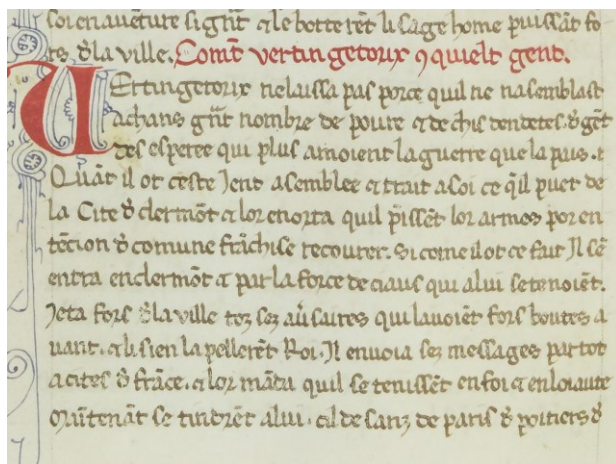 soi en auẽture si gñt ⁊ le botterẽt li sage home puissãt fo
rs đ la ville. Comẽt vertingetorix ꝯquielt gent.
VErtingetorix ne laissa pas por ce quil ne nasemblast
achans gñt nombre de poure ⁊ de chis dendetes. đ gẽt
des esperee qui plus amoient la guerre que la pais. ⁊
Quãt il ot ceste Jent asemblee ⁊ trait a soi ce q̃l puet de
la Cite đ clermõt ⁊ lor enorta quil p̃issẽt lor armes por en
tẽcion đ comune frãchise recourer. Si come il ot ce fait Jl sẽ
entra en clermõt ⁊ par la force de ciaus qui a lui se tenoiẽt.
Jeta fors đ la ville toz sez aũsaires qui lauoiẽt fors boutes a
uant. ⁊ li sien lapellerẽt Roi. Jl enuoia sez messages par tot
a cites đ frãce. ⁊ lor mãda quil se tenissẽt en foi ⁊ en loiaute
Maĩtenãt se tindrẽt a lui. cil de sanz de paris đ poitiers đ